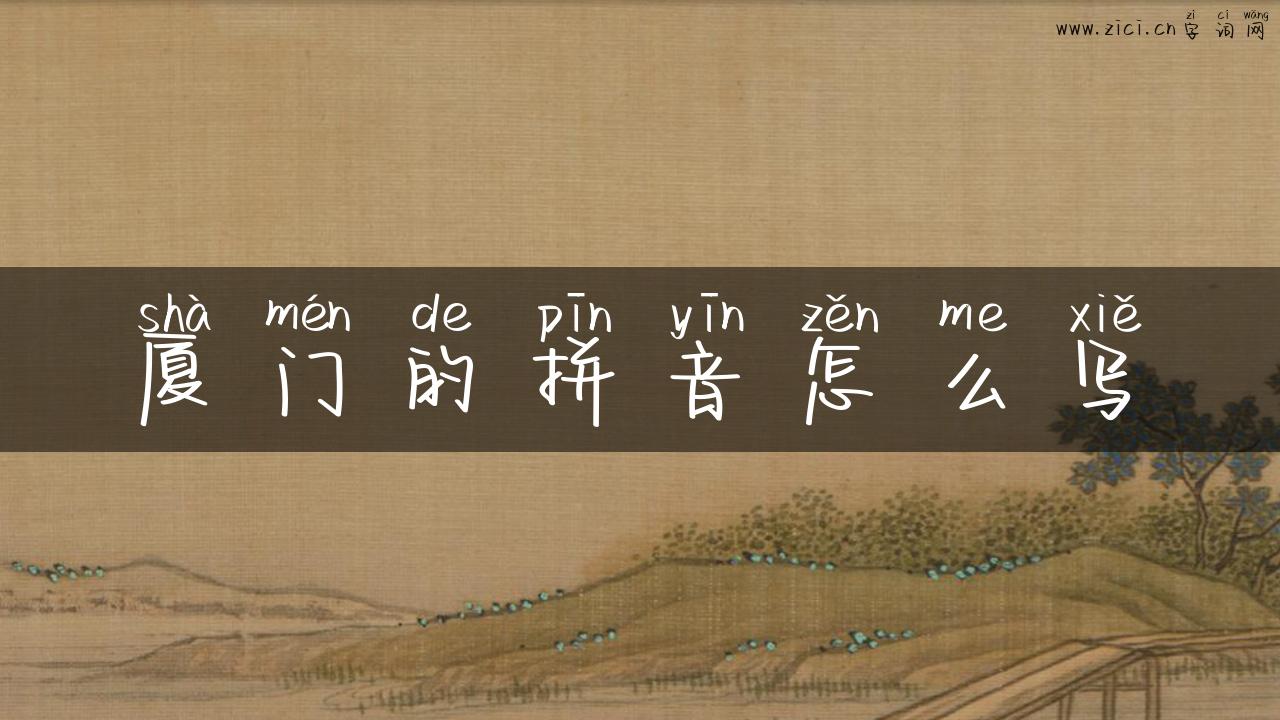 zì cí wǎng
www.zici.cn 字词网
shà mén de pīn yīn zěn me xiě
厦门的拼音怎么写